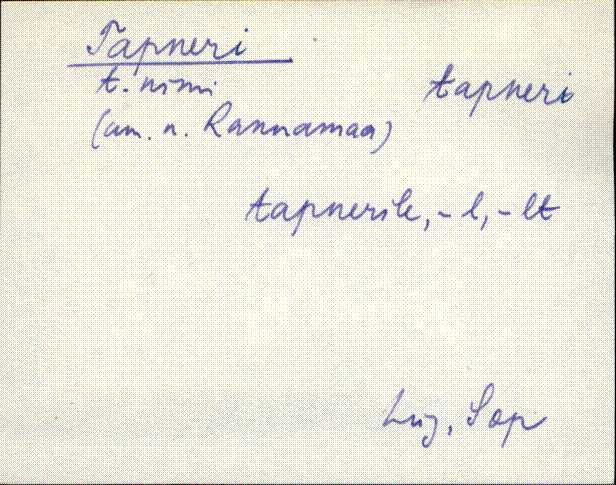 Tapneri
t. nimi tapneri
(am. n. Rannamaa)
tapnerile, -l, -lt
Lüg, Sop